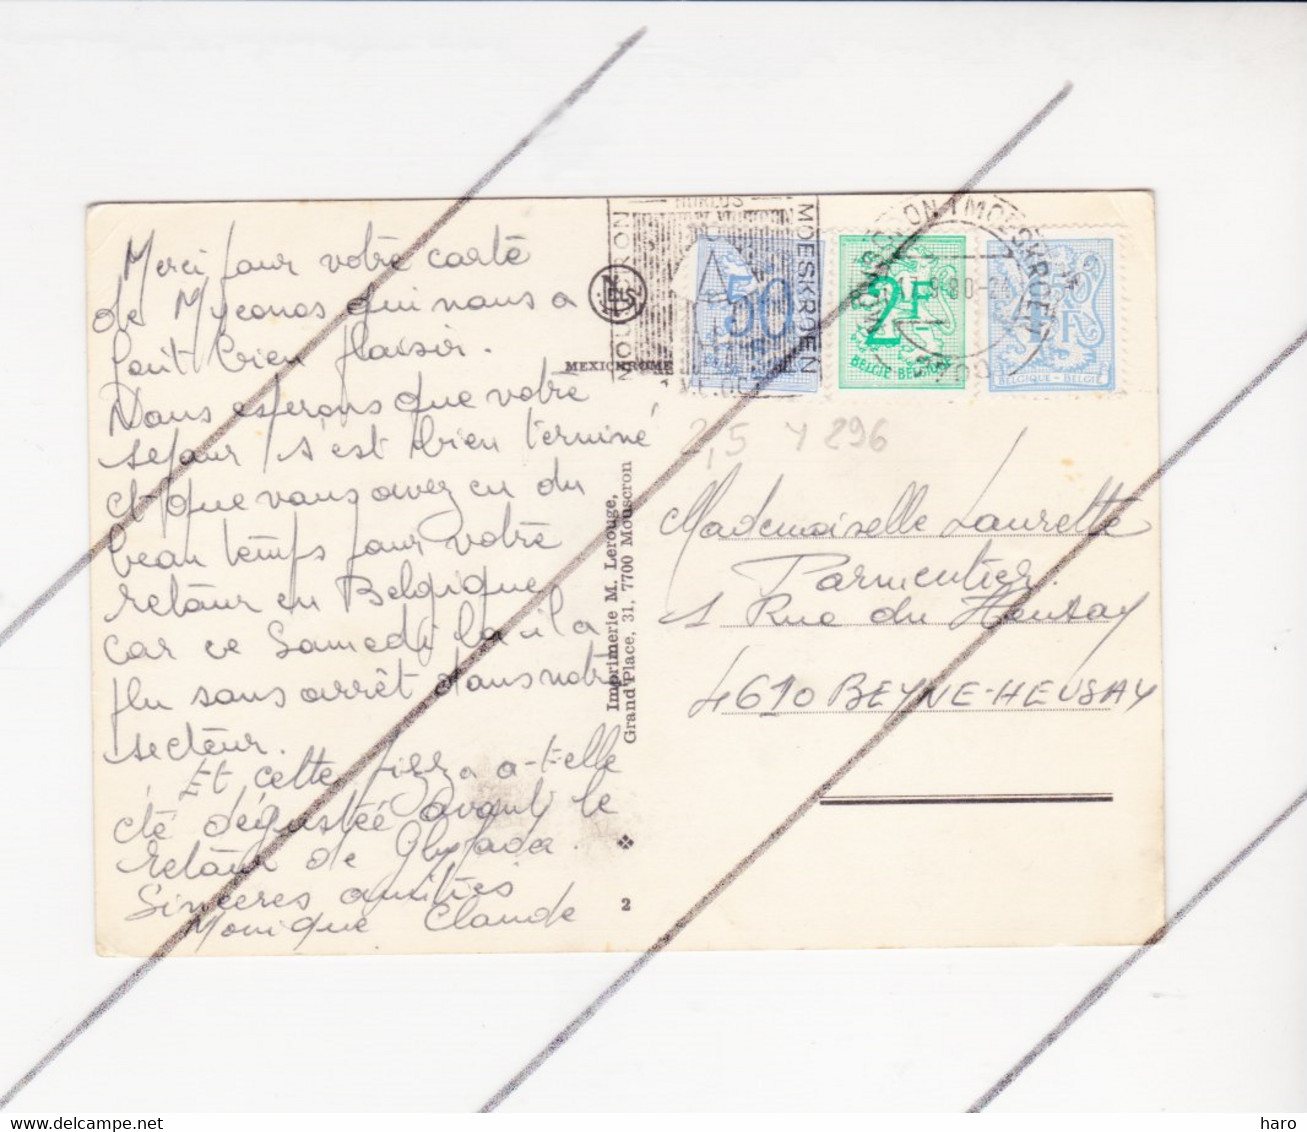 Merci pour votre carte
de Myconos qui nous a
fait bien plaisir.
Nous espérons que votre
séjour s'est bien terminé
et que vous avez eu du
beau temps pour votre
retour en Belgique
car ce Samedi là il a
plu sans arrêt dans notre
secteur.
Et cette pizza a-t-elle
été dégustée avant le
retour de Glyfada.
Sincères amitiés
Monique Claude
MEXICHROME
Imprimerie M. Lerouge,
Grand'Place, 31, 7700 Mouscron
2
MOESKROEN
50
2F
BELGIE BELGIQUE
1F
BELGIQUE - BELGIË
MOUSCRON 1 MOESKROEN 1
2,5 Y 296
Mademoiselle Laurette
Parmentier.
1 Rue du Heusay
4610 BEYNE-HEUSAY
haro